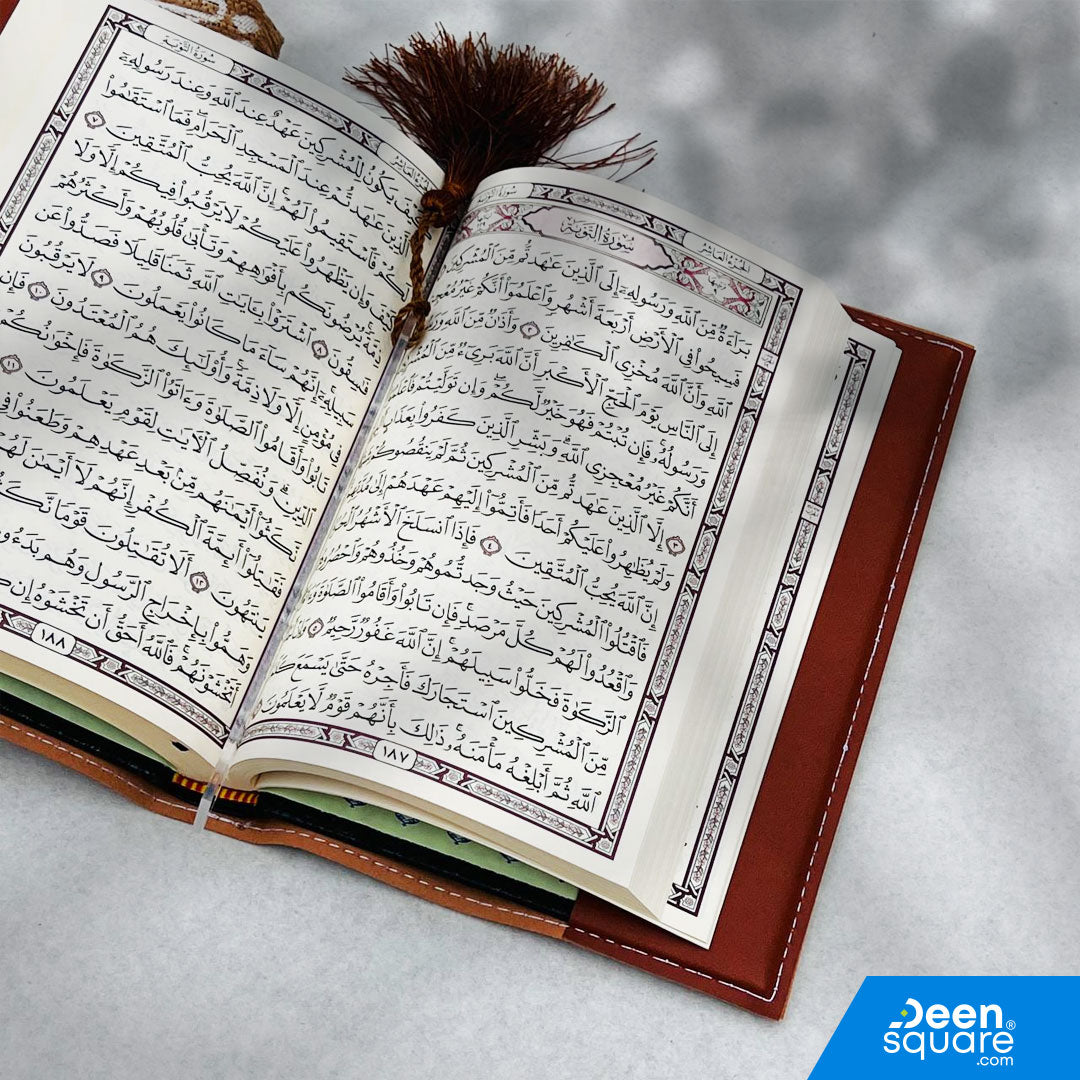 الجزء العاشر
سورة التوبة
سُورَةُ التَّوۡبَةِ
بَرَآءَةٌ مِّنَ ٱللَّهِ وَرَسُولِهِۦٓ إِلَى ٱلَّذِينَ عَٰهَدتُّم مِّنَ ٱلۡمُشۡرِكِينَ
فَسِيحُواْ فِي ٱلۡأَرۡضِ أَرۡبَعَةَ أَشۡهُرٖ وَٱعۡلَمُوٓاْ أَنَّكُمۡ غَيۡرُ
ٱللَّهِ وَأَنَّ ٱللَّهَ مُخۡزِي ٱلۡكَٰفِرِينَ ٢ وَأَذَٰنٞ مِّنَ ٱللَّهِ
إِلَى ٱلنَّاسِ يَوۡمَ ٱلۡحَجِّ ٱلۡأَكۡبَرِ أَنَّ ٱللَّهَ بَرِيٓءٞ مِّنَ
وَرَسُولُهُۥۚ فَإِن تُبۡتُمۡ فَهُوَ خَيۡرٞ لَّكُمۡۖ وَإِن تَوَلَّيۡتُمۡ
أَنَّكُمۡ غَيۡرُ مُعۡجِزِي ٱللَّهِۗ وَبَشِّرِ ٱلَّذِينَ كَفَرُواْ بِعَذَابٍ
٣ إِلَّا ٱلَّذِينَ عَٰهَدتُّم مِّنَ ٱلۡمُشۡرِكِينَ ثُمَّ لَمۡ يَنقُصُوكُمۡ
وَلَمۡ يُظَٰهِرُواْ عَلَيۡكُمۡ أَحَدٗا فَأَتِمُّوٓاْ إِلَيۡهِمۡ عَهۡدَهُمۡ إِلَىٰ
إِنَّ ٱللَّهَ يُحِبُّ ٱلۡمُتَّقِينَ ٤ فَإِذَا ٱنسَلَخَ ٱلۡأَشۡهُرُ
فَٱقۡتُلُواْ ٱلۡمُشۡرِكِينَ حَيۡثُ وَجَدتُّمُوهُمۡ وَخُذُوهُمۡ وَٱحۡصُرُوهُمۡ
وَٱقۡعُدُواْ لَهُمۡ كُلَّ مَرۡصَدٖۚ فَإِن تَابُواْ وَأَقَامُواْ ٱلصَّلَوٰةَ
ٱلزَّكَوٰةَ فَخَلُّواْ سَبِيلَهُمۡۚ إِنَّ ٱللَّهَ غَفُورٞ رَّحِيمٞ ٥
مِّنَ ٱلۡمُشۡرِكِينَ ٱسۡتَجَارَكَ فَأَجِرۡهُ حَتَّىٰ يَسۡمَعَ
ٱللَّهِ ثُمَّ أَبۡلِغۡهُ مَأۡمَنَهُۥۚ ذَٰلِكَ بِأَنَّهُمۡ قَوۡمٞ لَّا يَعۡلَمُونَ
١٨٧
سورة التوبة
يَكُونُ لِلۡمُشۡرِكِينَ عَهۡدٌ عِندَ ٱللَّهِ وَعِندَ رَسُولِهِۦٓ
ٱلَّذِينَ عَٰهَدتُّمۡ عِندَ ٱلۡمَسۡجِدِ ٱلۡحَرَامِۖ فَمَا ٱسۡتَقَٰمُواْ
لَكُمۡ فَٱسۡتَقِيمُواْ لَهُمۡۚ إِنَّ ٱللَّهَ يُحِبُّ ٱلۡمُتَّقِينَ
وَإِن يَظۡهَرُواْ عَلَيۡكُمۡ لَا يَرۡقُبُواْ فِيكُمۡ إِلّٗا وَلَا
ذِمَّةٗۚ يُرۡضُونَكُم بِأَفۡوَٰهِهِمۡ وَتَأۡبَىٰ قُلُوبُهُمۡ وَأَكۡثَرُهُمۡ
فَٰسِقُونَ ٨ ٱشۡتَرَوۡاْ بِـَٔايَٰتِ ٱللَّهِ ثَمَنٗا قَلِيلٗا فَصَدُّواْ عَن
سَبِيلِهِۦٓۚ إِنَّهُمۡ سَآءَ مَا كَانُواْ يَعۡمَلُونَ ٩ لَا يَرۡقُبُونَ
فِي مُؤۡمِنٍ إِلّٗا وَلَا ذِمَّةٗۚ وَأُوْلَٰٓئِكَ هُمُ ٱلۡمُعۡتَدُونَ ١٠ فَإِن
تَابُواْ وَأَقَامُواْ ٱلصَّلَوٰةَ وَءَاتَوُاْ ٱلزَّكَوٰةَ فَإِخۡوَٰنُكُمۡ
ٱلدِّينِۗ وَنُفَصِّلُ ٱلۡأٓيَٰتِ لِقَوۡمٖ يَعۡلَمُونَ ١١
نَّكَثُوٓاْ أَيۡمَٰنَهُم مِّنۢ بَعۡدِ عَهۡدِهِمۡ وَطَعَنُواْ فِي
فَقَٰتِلُوٓاْ أَئِمَّةَ ٱلۡكُفۡرِ إِنَّهُمۡ لَآ أَيۡمَٰنَ لَهُمۡ
يَنتَهُونَ ١٢ أَلَا تُقَٰتِلُونَ قَوۡمٗا نَّكَثُوٓاْ
وَهَمُّواْ بِإِخۡرَاجِ ٱلرَّسُولِ وَهُم بَدَءُوكُمۡ
أَتَخۡشَوۡنَهُمۡۚ فَٱللَّهُ أَحَقُّ أَن تَخۡشَوۡهُ إِن
١٨٨
Deen
square®
.com